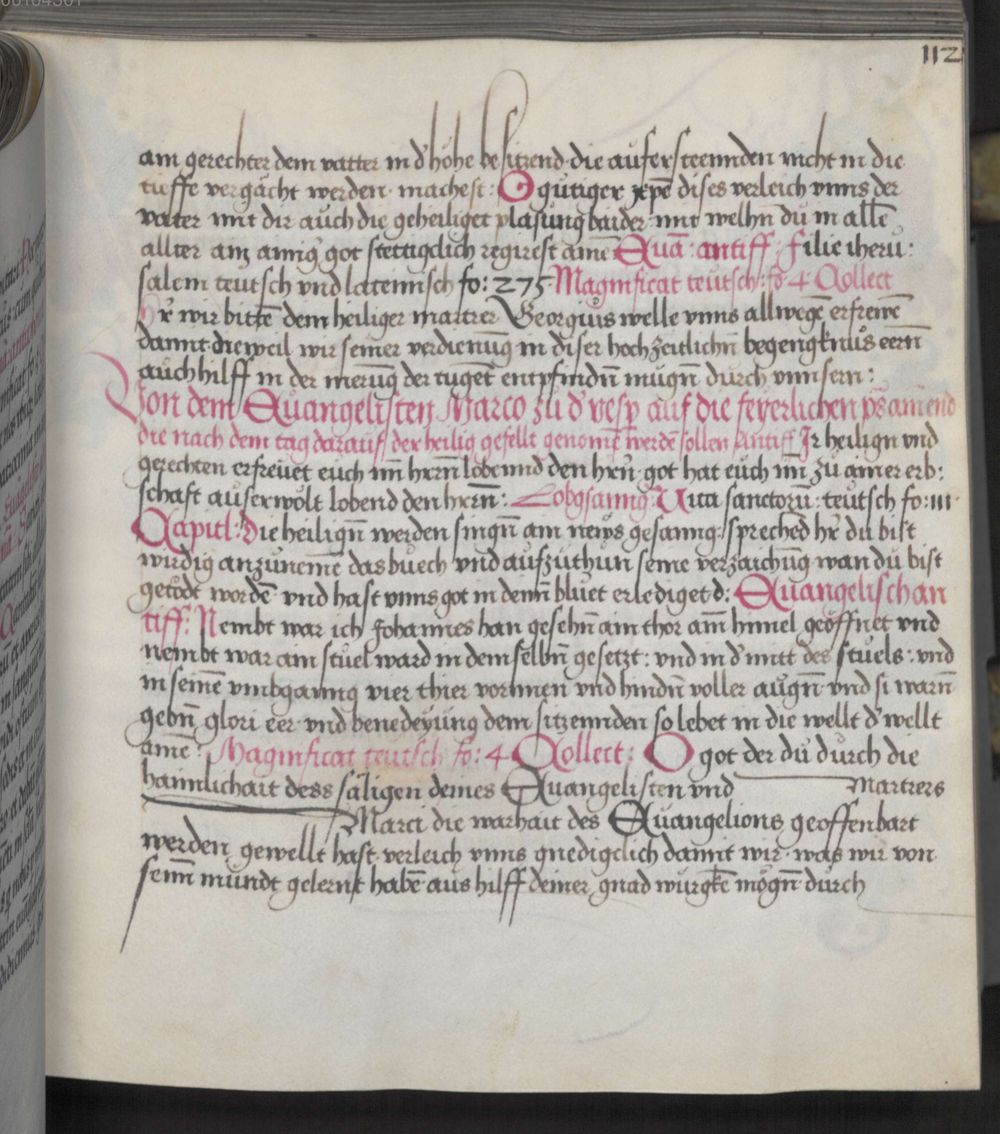 112
am gerechter dem vatter in d' höhe besitzend die aufersteennden nicht in die
tieffe vergächt werden machest: O gütiger xp̄e dises verleich vnns der
vater mit dir auch die geheiliget plasung baider mit welhn̄ du in allē
allter am got stettigclich regirest amē Euā: antiff: Filie iheru:
salem teutsch vnd lateinisch fo: 275 Magnificat teutsch: fo: 4 Collect
Hr̄ wir bittē dem heiliger martrer Georgius welle vnns allwegē erfrewē
damit dieweil wir seiner verdienūg in diser hochzeitlichn̄ begengknus eern̄
auch hilff in der merūg der tugēt entpfindn̄ mugn̄ durch vnnsern:
Von dem Euangelisten Marco zu d' vesp̄ auf die feyerlichen ps amend
die nach dem tag darauf der heilig gefellt genomē werdē sollen Antiff Ir heilign vnd
gerechten erfreuet euch im̄ hern̄ lobennd den hrn̄ got hat euch im̄ zu ainer erb:
schaft auserwölt lobend den hrn̄: Lobgsanng Uita sanctorū: teutsch fo: 111
Capitl: Die heilign̄ werden singn̄ am news gesanng: sprechēd hr̄ du bist
wirdig anzunemē das buech vnd aufzuthun seine verzaichūg wan du bist
getödt wordē vnd hast vnns got in deinn̄ bluet erlediget d: Euangelisch an
tiff: Nembt war ich Johannes han gesehn̄ ain thor am̄ himel geöffnet vnd
nembt war ain stuel ward in demselbn̄ gesetzt: vnd in d' mitt des stuels: vnd
in seinē vmbganng vier thier vorinnen vnd hindn̄ voller augn̄ vnd si warn̄
gebn̄ glori eer vnd benedeyung dem sitzennden so lebet in die wellt d' wellt
amē: Magnificat teutsch fo: 4 Collect: O got der du durch die
haimlichait dess säligen deines Euangelisten vnd Martrers
Marci die warhait des Euangelions geoffenbart
werden gewellt hast verleich vnns gnedigclich damit wir was wir von
seinm̄ mundt gelernt habē aus hilff deiner gnad würgkē mögn̄ durch